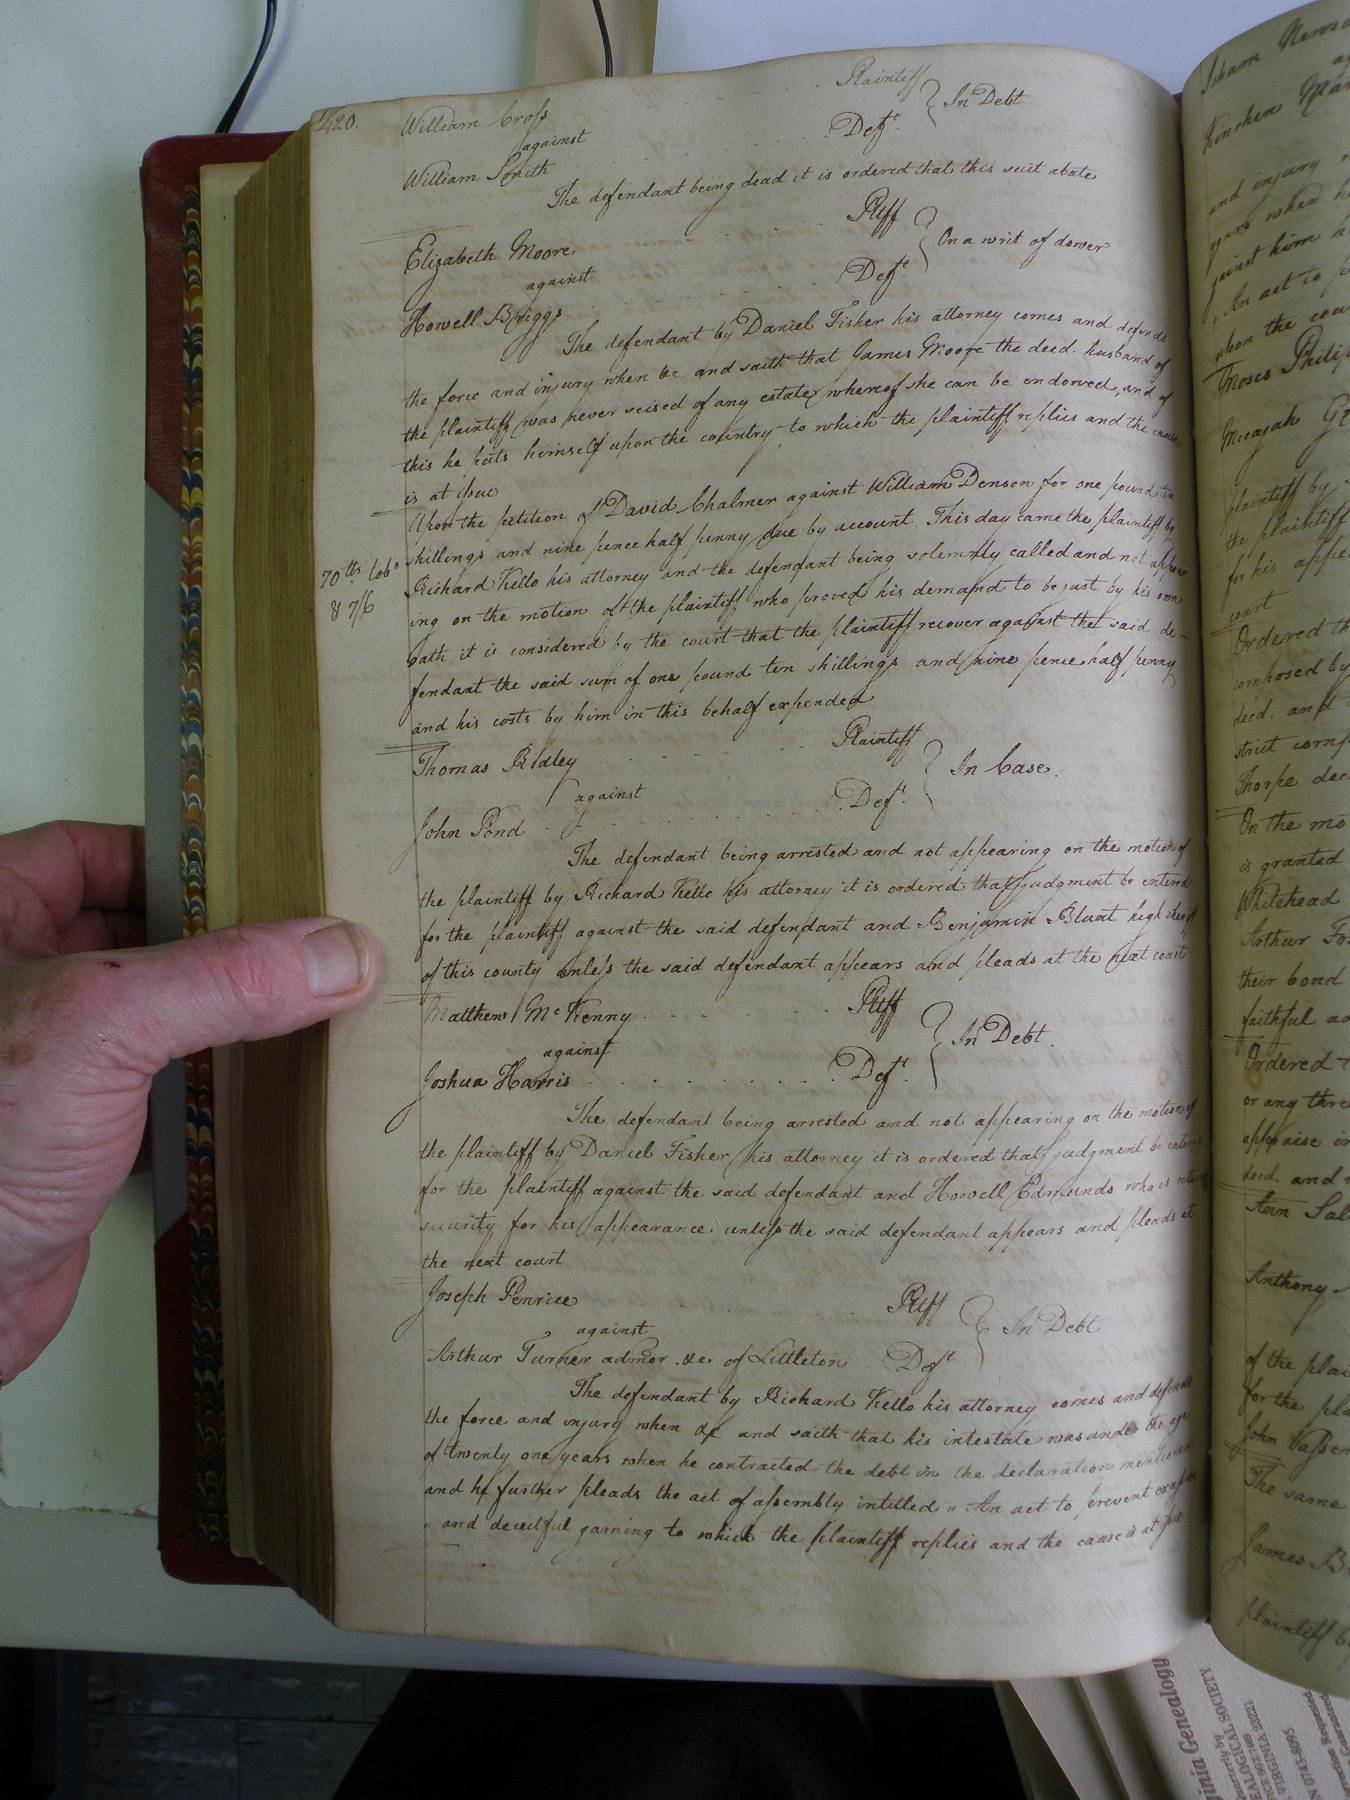 420.
William Cross Plaintiff
against } In Debt
William Smith Deft.
The defendant being dead it is ordered that this suit abate
Elizabeth Moore Pltff
against } On a writ of dower
Howell Briggs Deft
The defendant by Daniel Fisher his attorney comes and defends
the force and injury when &c and saith that James Moore the deed. husband of
the plaintiff was never seised of any estate whereof she can be endowed, and of
this he puts himself upon the country to which the plaintiff replies and the cause
is at issue
Upon the petition of David Chalmer against William Denson for one pound ten
shillings and nine pence half penny due by account. This day came the plaintiff by
70 tts tobo
Richard Kello his attorney and the defendant being solemnly called and not appear
& 7/6
ing on the motion of the plaintiff who proved his demand to be just by his own
oath it is considered by the court that the plaintiff recover against the said de-
fendant the said sum of one pound ten shillings and nine pence half penny
and his costs by him in this behalf expended
Thomas Ridley Plaintiff
against } In Case.
John Pond Deft.
The defendant being arrested and not appearing on the motion of
the plaintiff by Richard Kello his attorney it is ordered that judgment be entered
for the plaintiff against the said defendant and Benjamin Blunt high sheriff
of this county unless the said defendant appears and pleads at the next court
Matthew McKenny Pltff
against } In Debt.
Joshua Harris Deft.
The defendant being arrested and not appearing on the motion of
the plaintiff by Daniel Fisher his attorney it is ordered that judgment be entered
for the plaintiff against the said defendant and Howell Edmunds who is returned
security for his appearance unless the said defendant appears and pleads at
the next court
Joseph Penrice Pltff
against } In Debt
Arthur Turner admor. &c. of Littleton Deft
The defendant by Richard Kello his attorney comes and defends
the force and injury when &c and saith that his intestate was under the age
of twenty one years when he contracted the debt in the declaration mentioned
and he further pleads the act of assembly intitled " An act to prevent excessive
" and deceitful gaming to which the plaintiff replies and the cause is at issue
Isham
Kinchen
and injury
years when
against him
An act to
upon the
Moses Philip
Micajah
plaintiff by
the plaintiff
for his appe
court
Ordered th
composed by
deed. and
strict comp
Thorpe dec
On the mo
is granted
Whitehead
Arthur
their bond
faithful
Ordered
or any thre
appraise in
deed. and
Ann
Anthony
of the plai
for the pla
John
The same
James
plaintiff
inia Genealogy
EALOGICAL SOCIETY
VIRGINIA